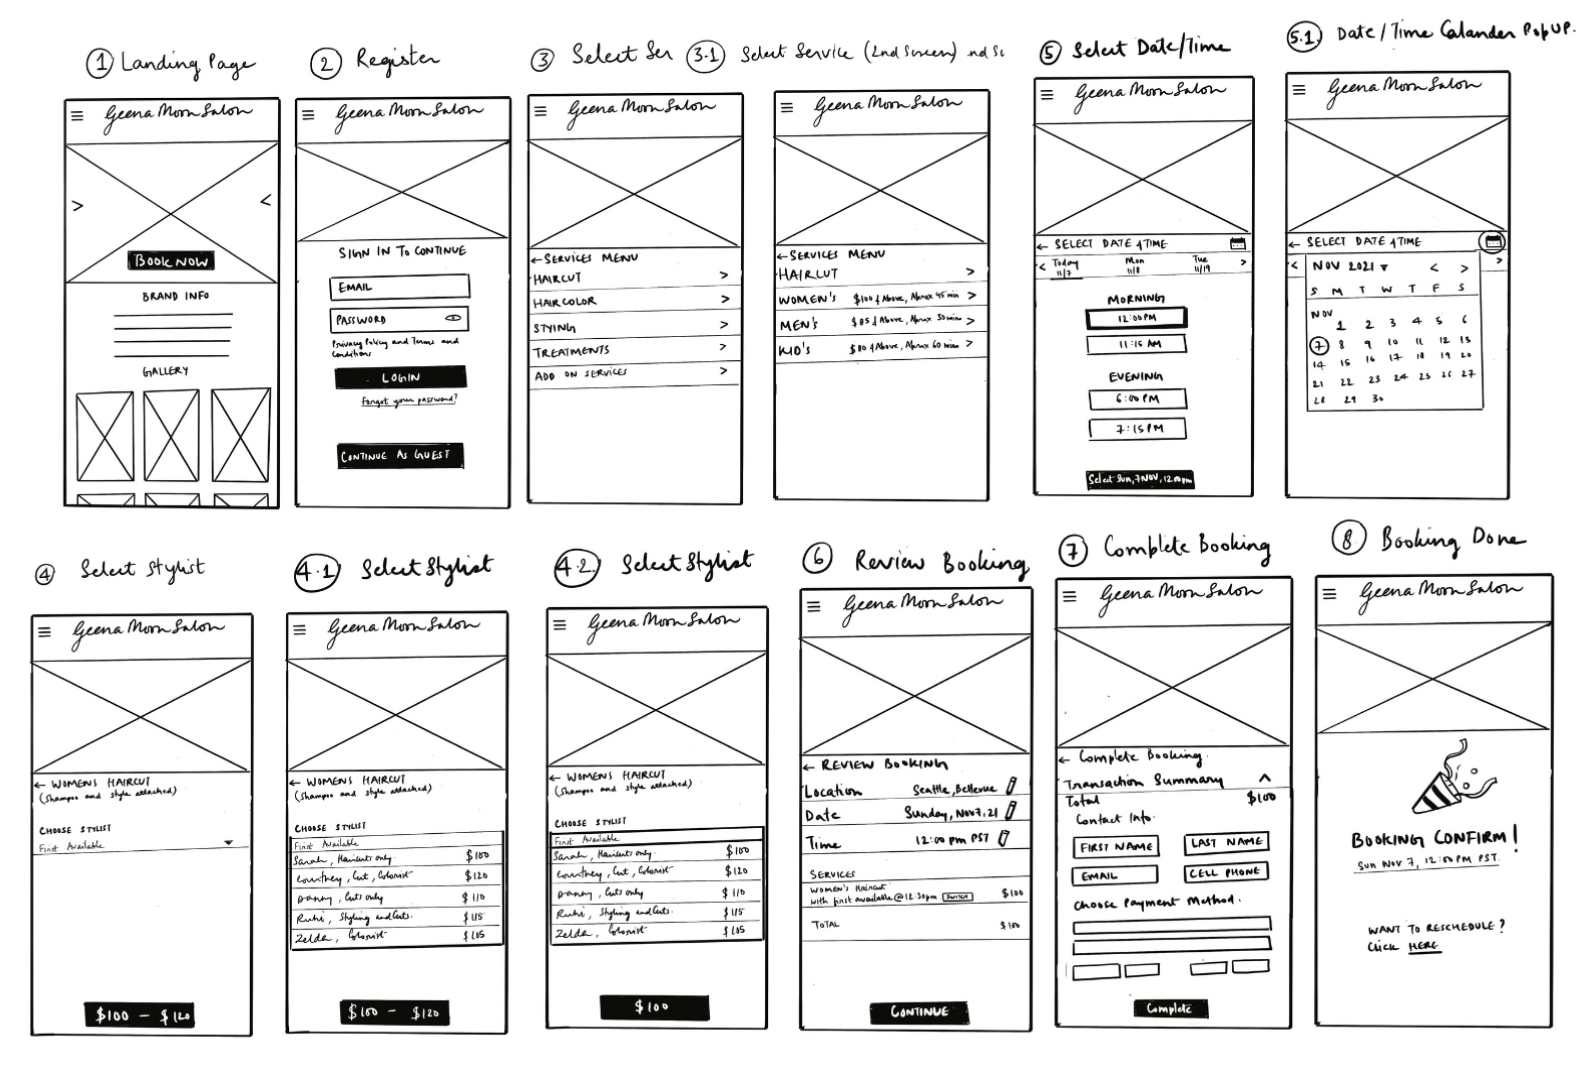 1 Landing Page
≡ Geena Moon Salon
> <
BOOK NOW
BRAND INFO
GALLERY
2 Register
≡ Geena Moon Salon
SIGN IN TO CONTINUE
EMAIL
PASSWORD
Privacy Policy and Terms and
Conditions
LOGIN
Forgot your password?
CONTINUE AS GUEST
3 Select Ser
≡ Geena Moon Salon
← SERVICES MENU
HAIRCUT >
HAIRCOLOR >
STYING >
TREATMENTS >
ADD ON SERVICES >
3.1 Select Service (2nd Screen) nd Sc
≡ Geena Moon Salon
← SERVICES MENU
HAIRCUT >
WOMEN'S $100 & Above, Aprox 45 min >
MEN'S $85 & Above, Aprox 30 min >
KID'S $80 & Above, Aprox 60 min >
5 Select Date/Time
≡ Geena Moon Salon
← SELECT DATE & TIME
< Today Mon Tue >
11/7 11/8 11/19
MORNING
12:00 PM
11:15 AM
EVENING
6:00 PM
7:15 PM
Select Sun, 7 NOV, 12:00pm
5.1 Date/Time Calander PopUP.
≡ Geena Moon Salon
← SELECT DATE & TIME
< NOV 2021 ▾ < > >
S M T W T F S
NOV
1 2 3 4 5 6
7 8 9 10 11 12 13
14 15 16 17 18 19 20
21 22 23 24 25 26 27
28 29 30
4 Select Stylist
≡ Geena Moon Salon
← WOMENS HAIRCUT
(Shampoo and style attached)
CHOOSE STYLIST
First Available
$100 - $120
4.1 Select Stylist
≡ Geena Moon Salon
← WOMENS HAIRCUT
(Shampoo and style attached)
CHOOSE STYLIST
First Available
Sarah, Haircuts only. $100
Courtney, Cut, Colorist $120
Danny, Cuts only $110
Ruhi, Styling and Cuts. $115
Zelda, Colorist $105
$100 - $120
4.2 Select Stylist
≡ Geena Moon Salon
← WOMENS HAIRCUT
(Shampoo and style attached)
CHOOSE STYLIST
First Available
Sarah, Haircuts only. $100
Courtney, Cut, Colorist $120
Danny, Cuts only $110
Ruhi, Styling and Cuts. $115
Zelda, Colorist $105
$100
6 Review Booking
≡ Geena Moon Salon
← REVIEW BOOKING
Location Seattle, Bellevue
Date Sunday, Nov 7, 21
Time 12:00 pm PST
SERVICES
WOMEN'S Haircut
with first available @ 12:30pm $100
TOTAL $100
CONTINUE
7 Complete Booking
≡ Geena Moon Salon
← Complete Booking.
Transaction Summary ^
Total $100
Contact Info.
FIRST NAME LAST NAME
EMAIL CELL PHONE
Choose Payment Method.
Complete
8 Booking Done
≡ Geena Moon Salon
BOOKING CONFIRM!
SUN NOV 7, 12:00PM PST.
WANT TO RESCHEDULE?
Click HERE